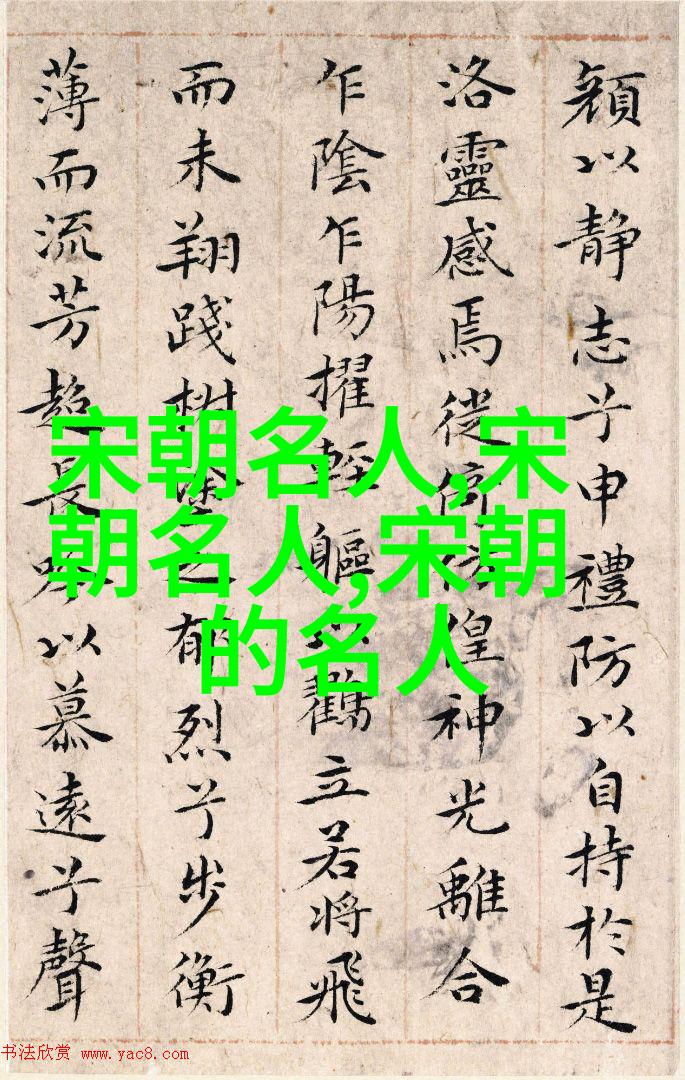 顔以静志兮申禮防以自持於是
洛靈感焉徙惶神光離合
乍陰乍陽擢輕軀鶴立若將飛
而未翔踐郁烈兮步衡
薄而流芳超長吟以慕遠兮聲
宋朝名人,宋
朝名人,宋朝
的名人
书法欣赏 www.yac8.com